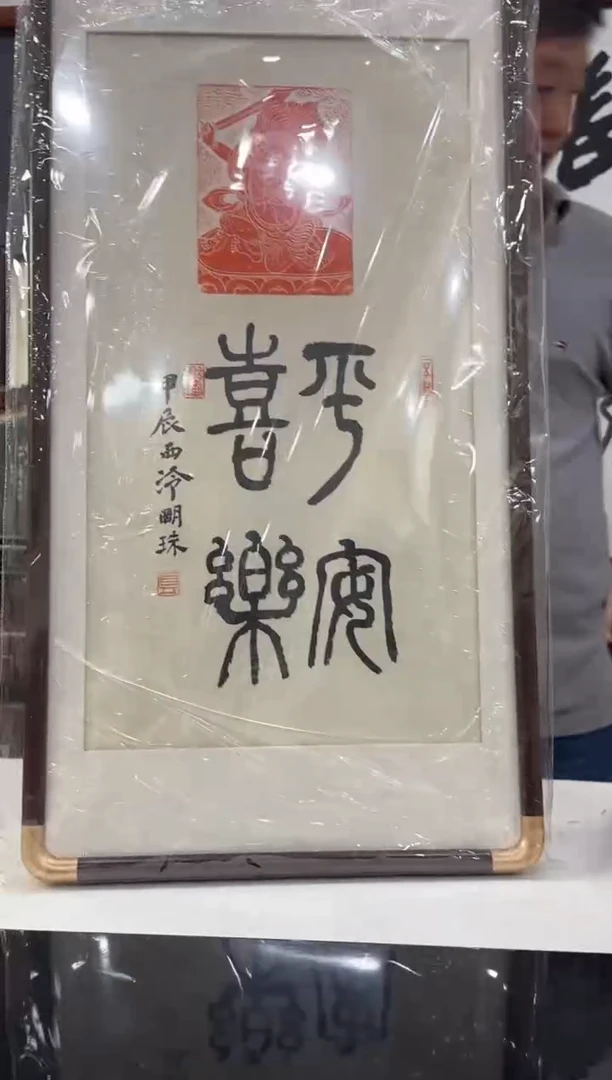 平安
喜樂
甲辰西泠明珠